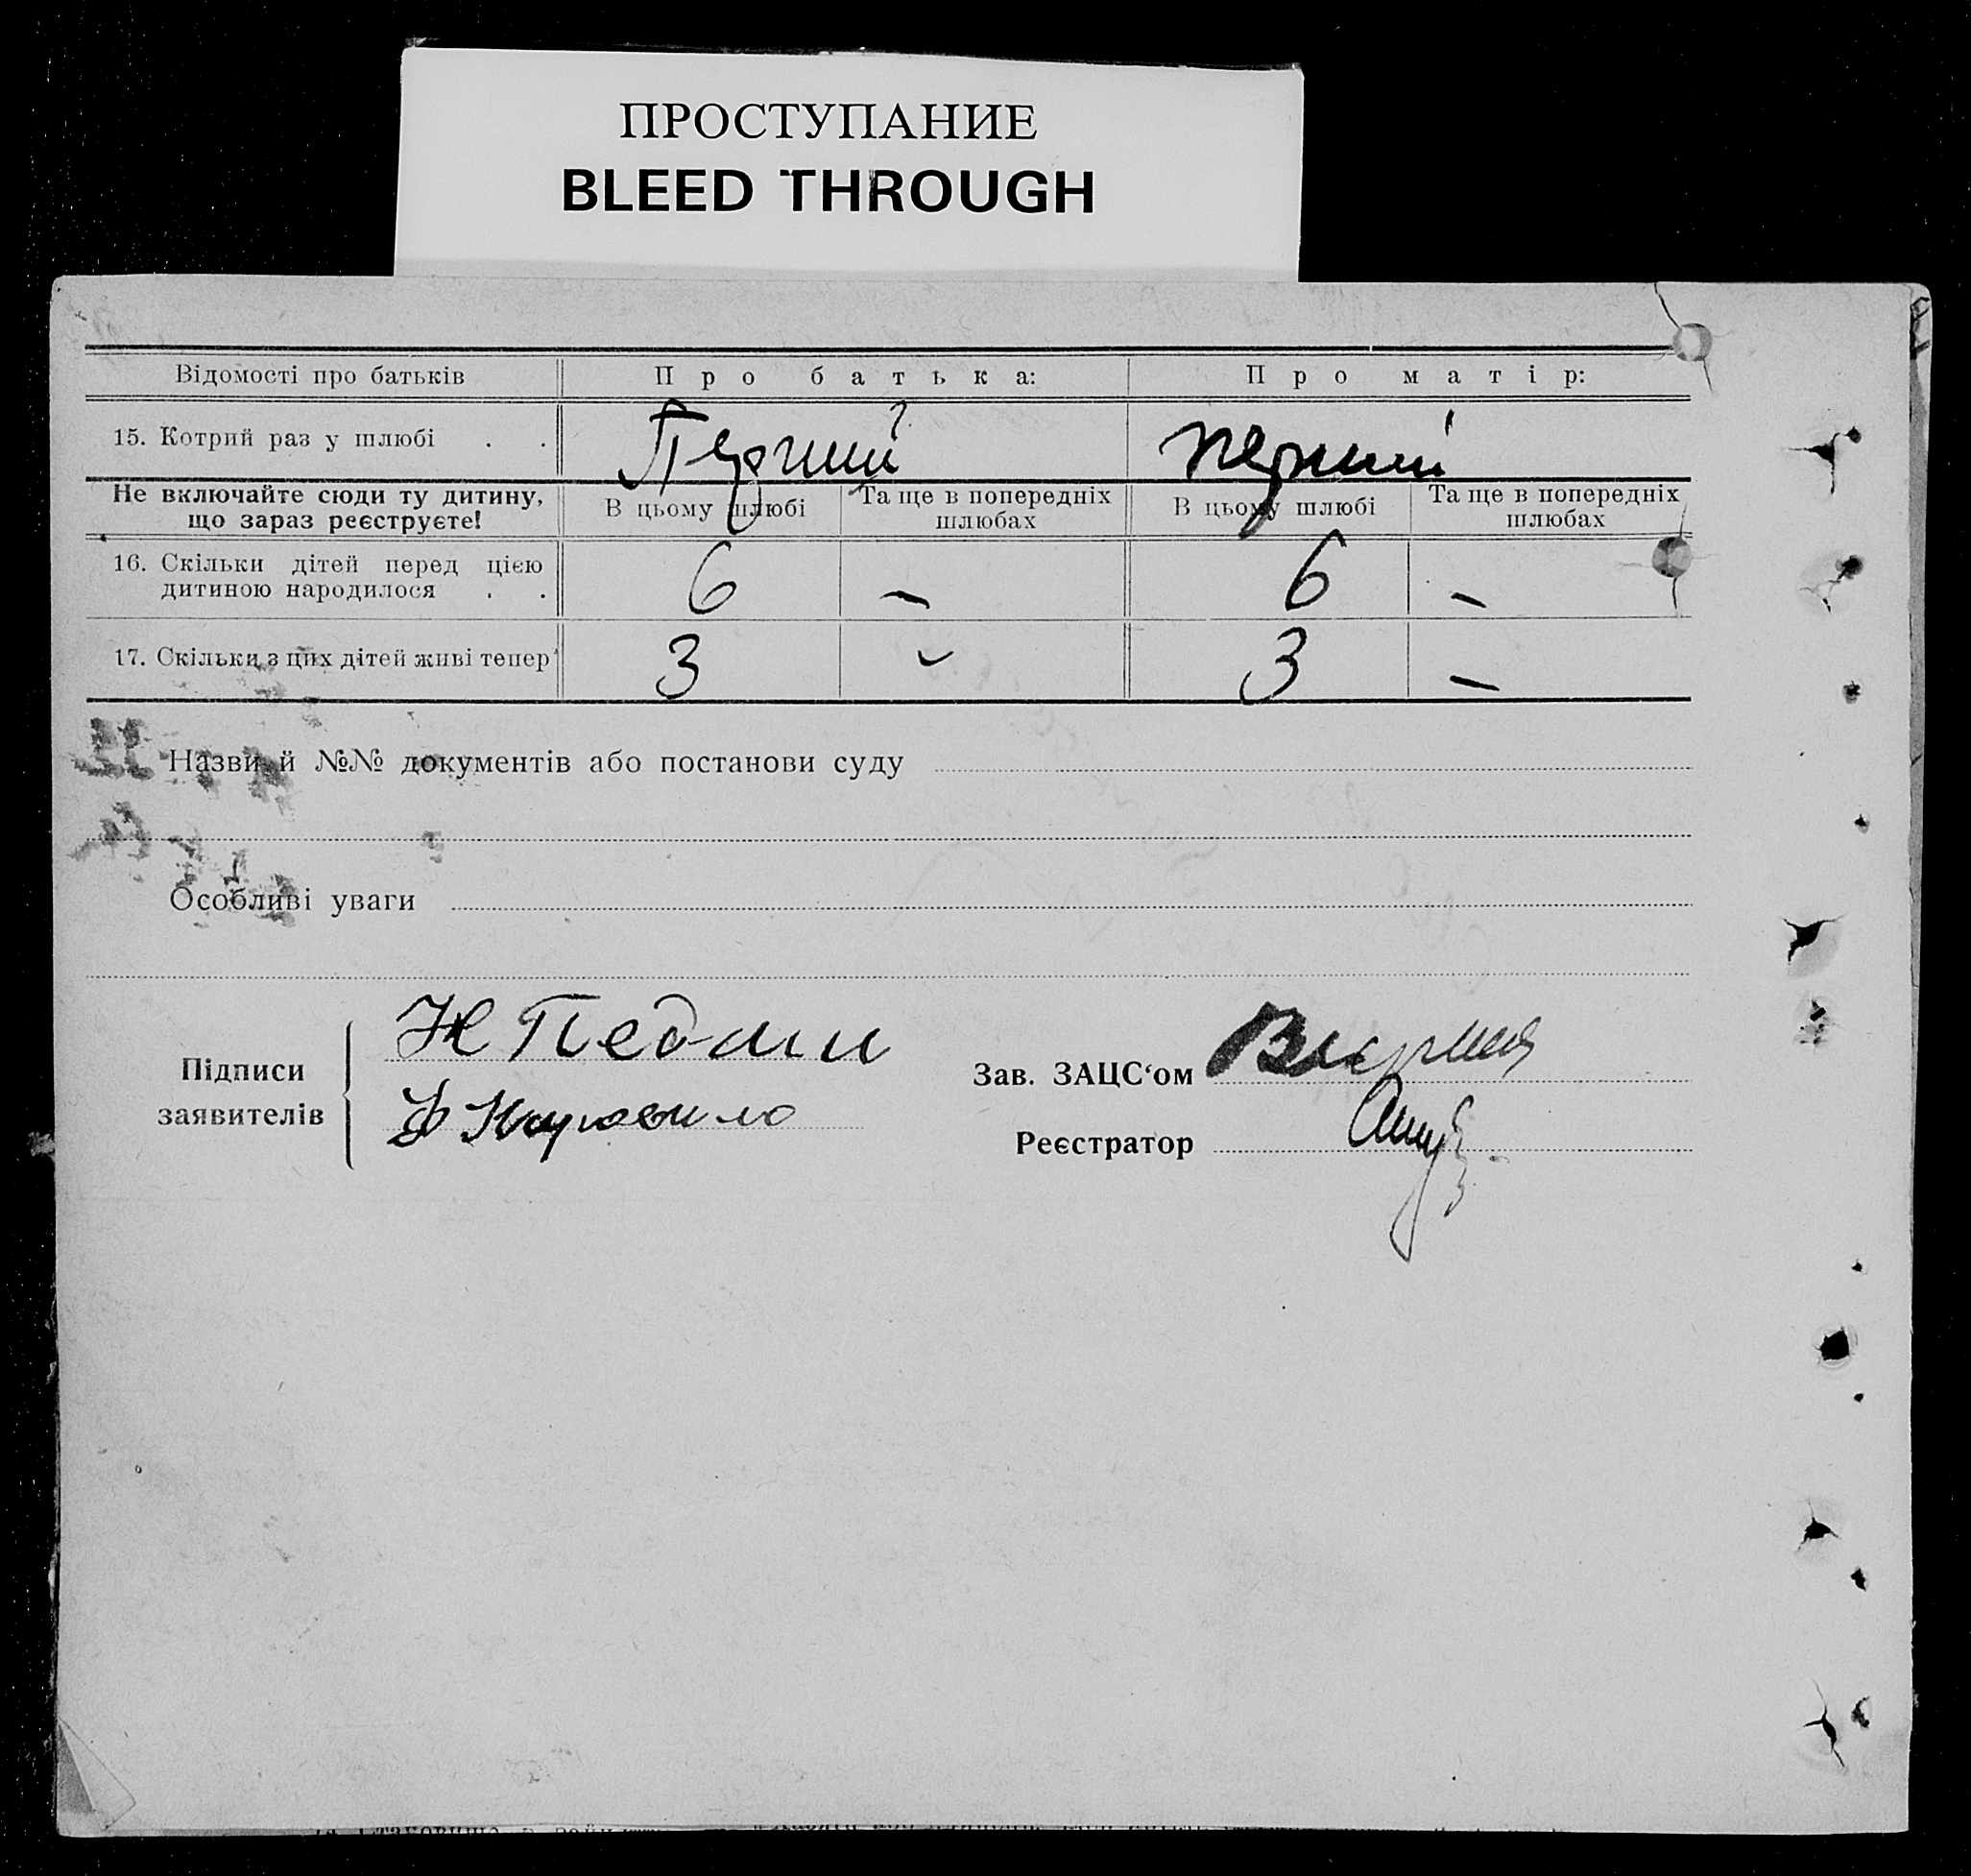 ПРОСТУПАНИЕ
BLEED THROUGH
Відомості про батьків Про батька: Про матір:
15. Котрий раз у шлюбі . . Перший перший
Не включайте сюди ту дитину, що зараз реєструєте! В цьому шлюбі Та ще в попередніх шлюбах В цьому шлюбі Та ще в попередніх шлюбах
16. Скільки дітей перед цією дитиною народилося . . 6 – 6 –
17. Скільки з цих дітей живі тепер 3 – 3 –
Назви й №№ документів або постанови суду
Особливі уваги
Підписи заявителів
Зав. ЗАЦС‘ом
Реєстратор